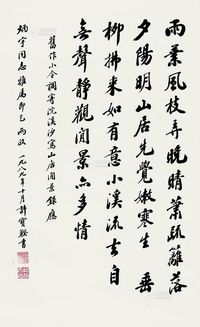 雨葉風枝弄晚晴蕭疏籬落
夕陽明山居先覺嫩寒生 垂
柳拂来如有意小溪流去自
無聲靜觀閒景亦多情
舊作小令調寄浣溪沙寫山居閒景錄應
炳宇同志雅屬即乞兩政 一九八九年十月許寶騤書